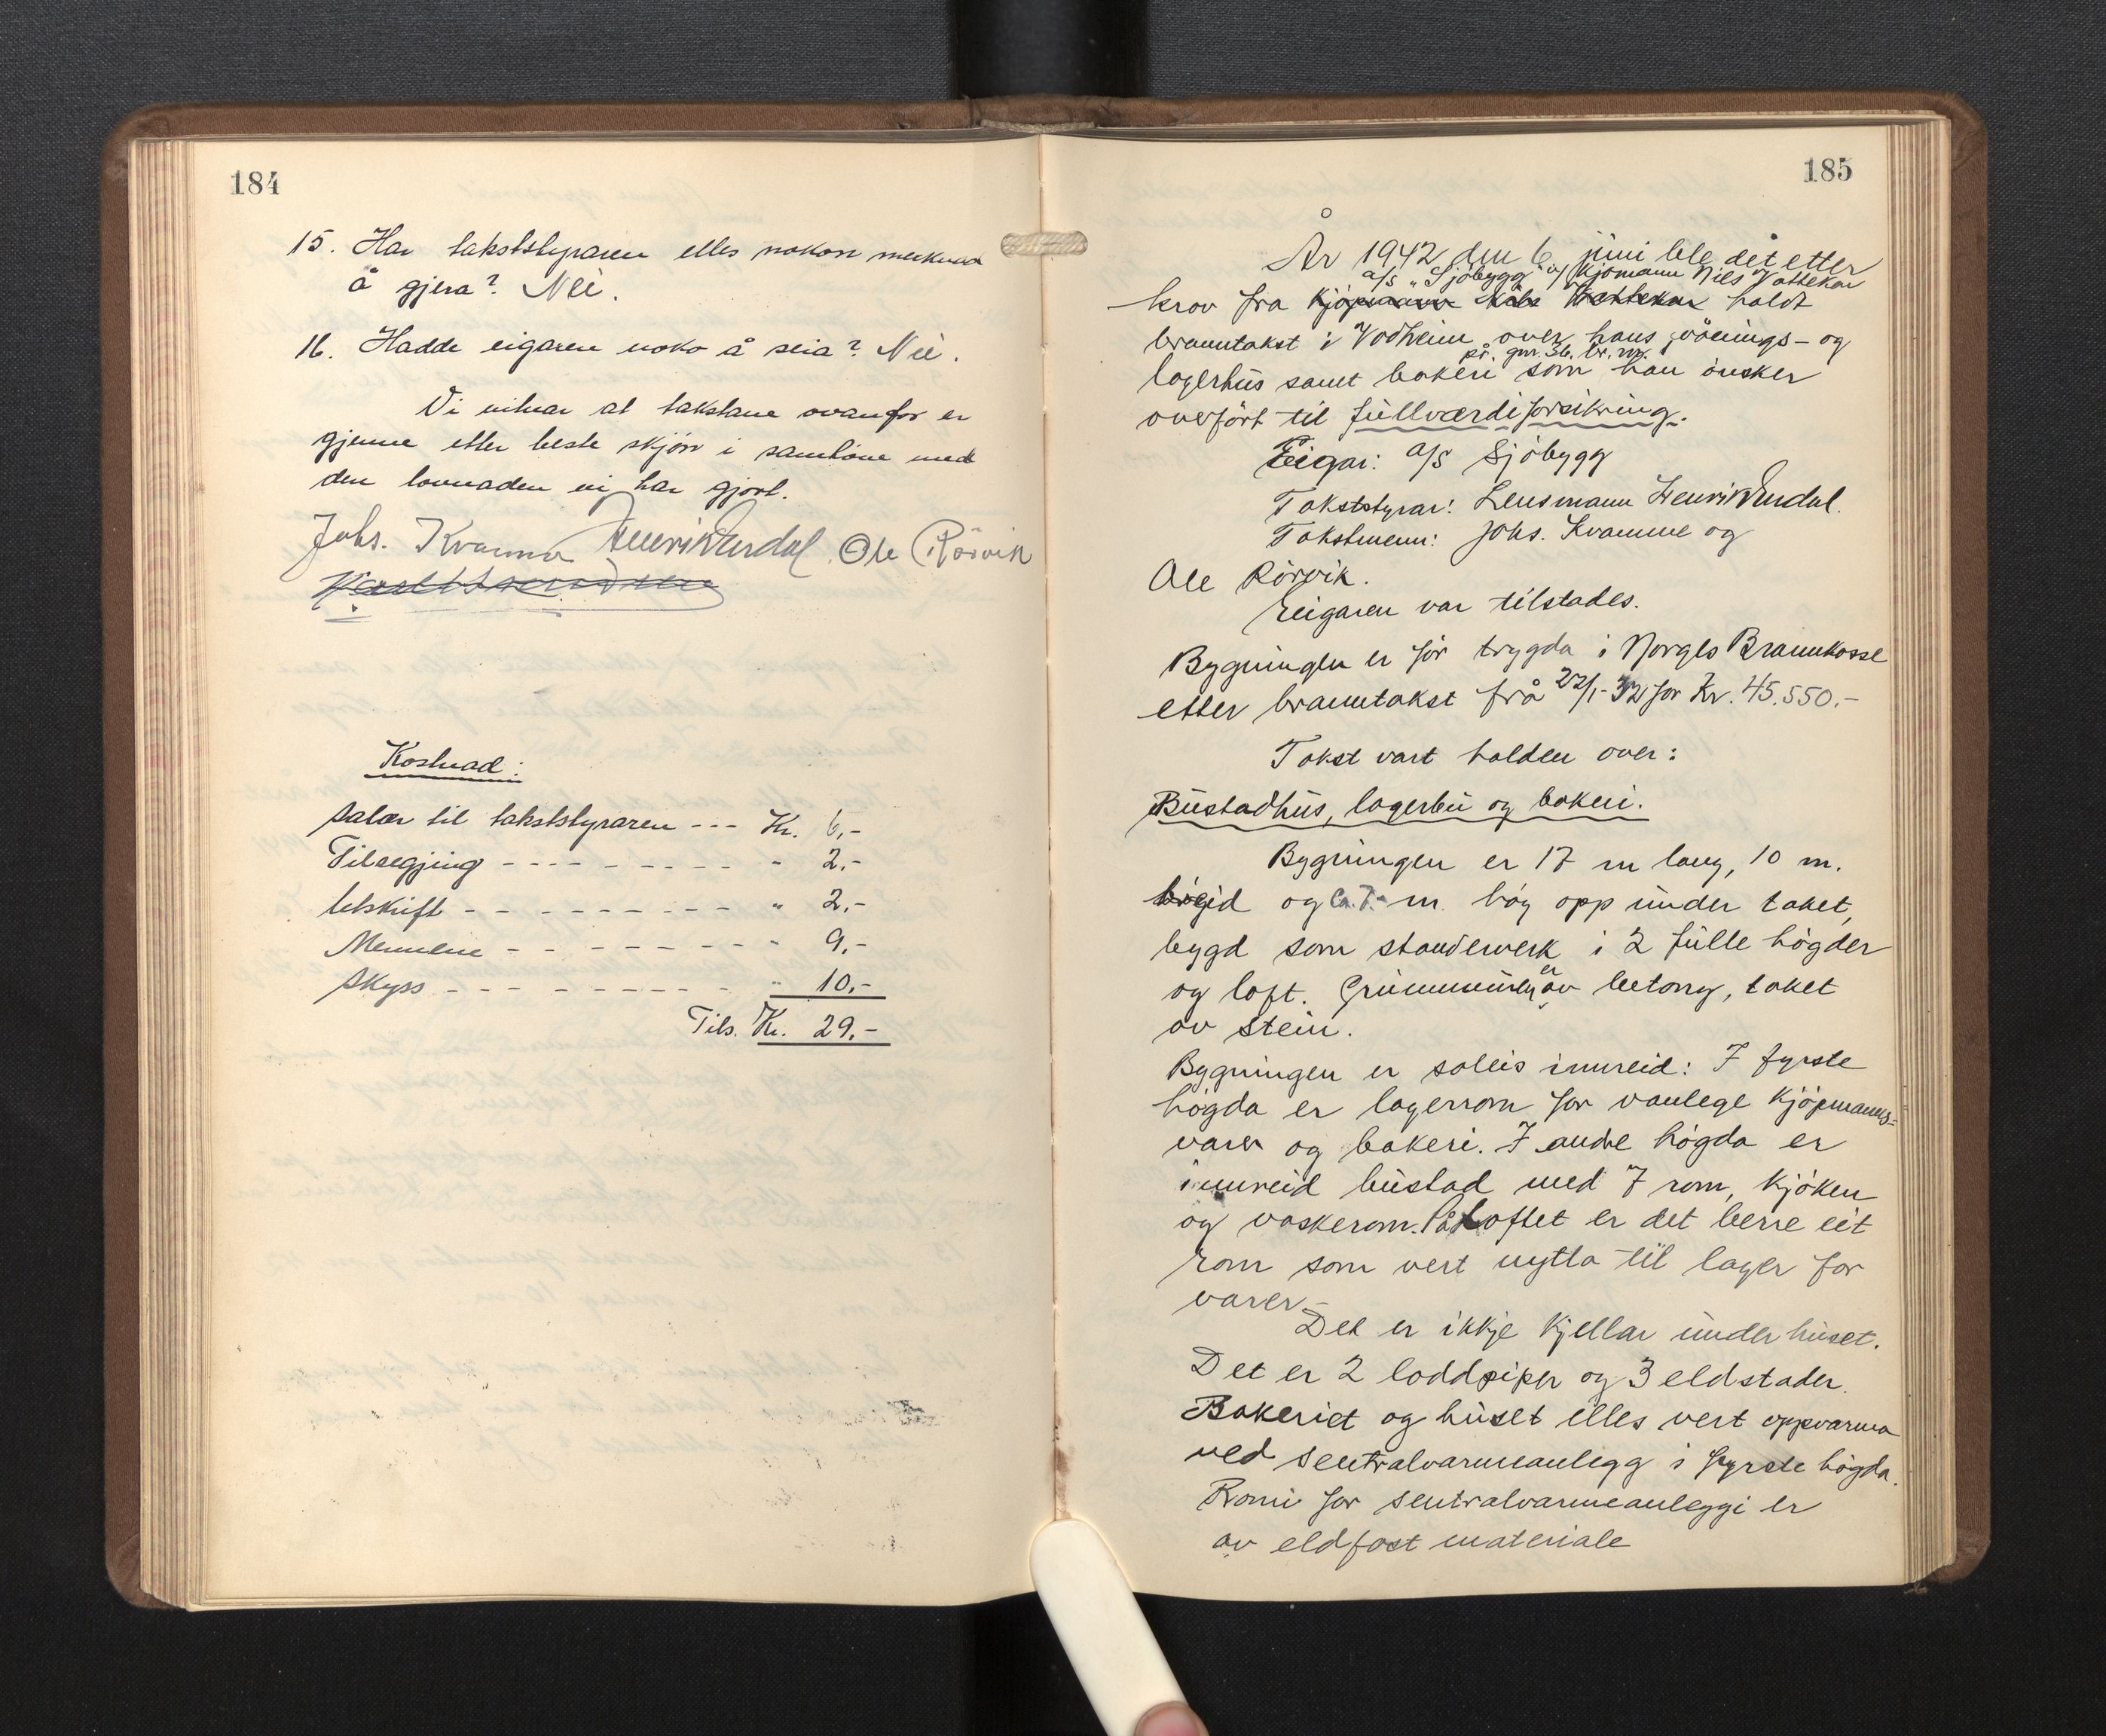 184
15. Har takststyraren elles nokon merknad
å gjera? Nei.
16. Hadde eigaren noko å seia? Nei.
Vi vitnar at takstane ovanfor er
gjenne etter beste skjön i samhöve med
den lovnaden vi har gjort.
Johs. Kvamme Henrik Verdal. Ole Rörvik
Kostnad:
Salær til takststyraren --- Kr. 6,-
Tilsegjing - - - - - - - - - " 2,-
Utskrift - - - - - - - - - " 2,-
Mennene - - - - - - - - " 9,-
Skyss - - - - - - - - - " 10,-
Tils. Kr. 29,-
185
År 1942 den 6. juni ble det etter
a/s "Sjöbygg" v/ Kjömann Nils Vattekar
krav fra Kjöpmann Nils Vattekar haldt
branntakst i Vadheim over hans vånings- og
på gnr. 36. br. nr.
lagerhus samt bakeri som han önsker
overfört til fullverdiforsikring.
Eigar: a/s Sjöbygg
Takststyrar: Lensmann Henrik Verdal.
Takstmenn: Johs. Kvamme og
Ole Rörvik.
Eigaren var tilstades.
Bygningen er för trygda i Norges Brannkasse
etter branntakst frå 22/1-32 for Kr. 45.550.-
Takst vart halden over:
Bustadhus, lagerbu og bakeri.
Bygningen er 17 m lang, 10 m.
breid og ca. 7.- m. höy opp under taket,
bygd som standerverk i 2 fulle högder
og loft. Grunnmuren er av betong, taket
av stein.
Bygningen er soleis innreid: I fyrste
högda er lagerrom for vanlege Kjöpmanns-
varer og bakeri. I andre högda er
innreid bustad med 7 rom, kjöken
og vaskerom. På Loftet er det berre eit
rom som vert nytta til lager for
varer.-
Det er ikkje Kjellar under huset.
Det er 2 loddpiper og 3 eldstader.
Bakeriet og huset elles vert oppvarma
ved sentralvarmeanlegg i fyrste högda.
Romi for sentralvarmeanleggi er
av eldfast materiale